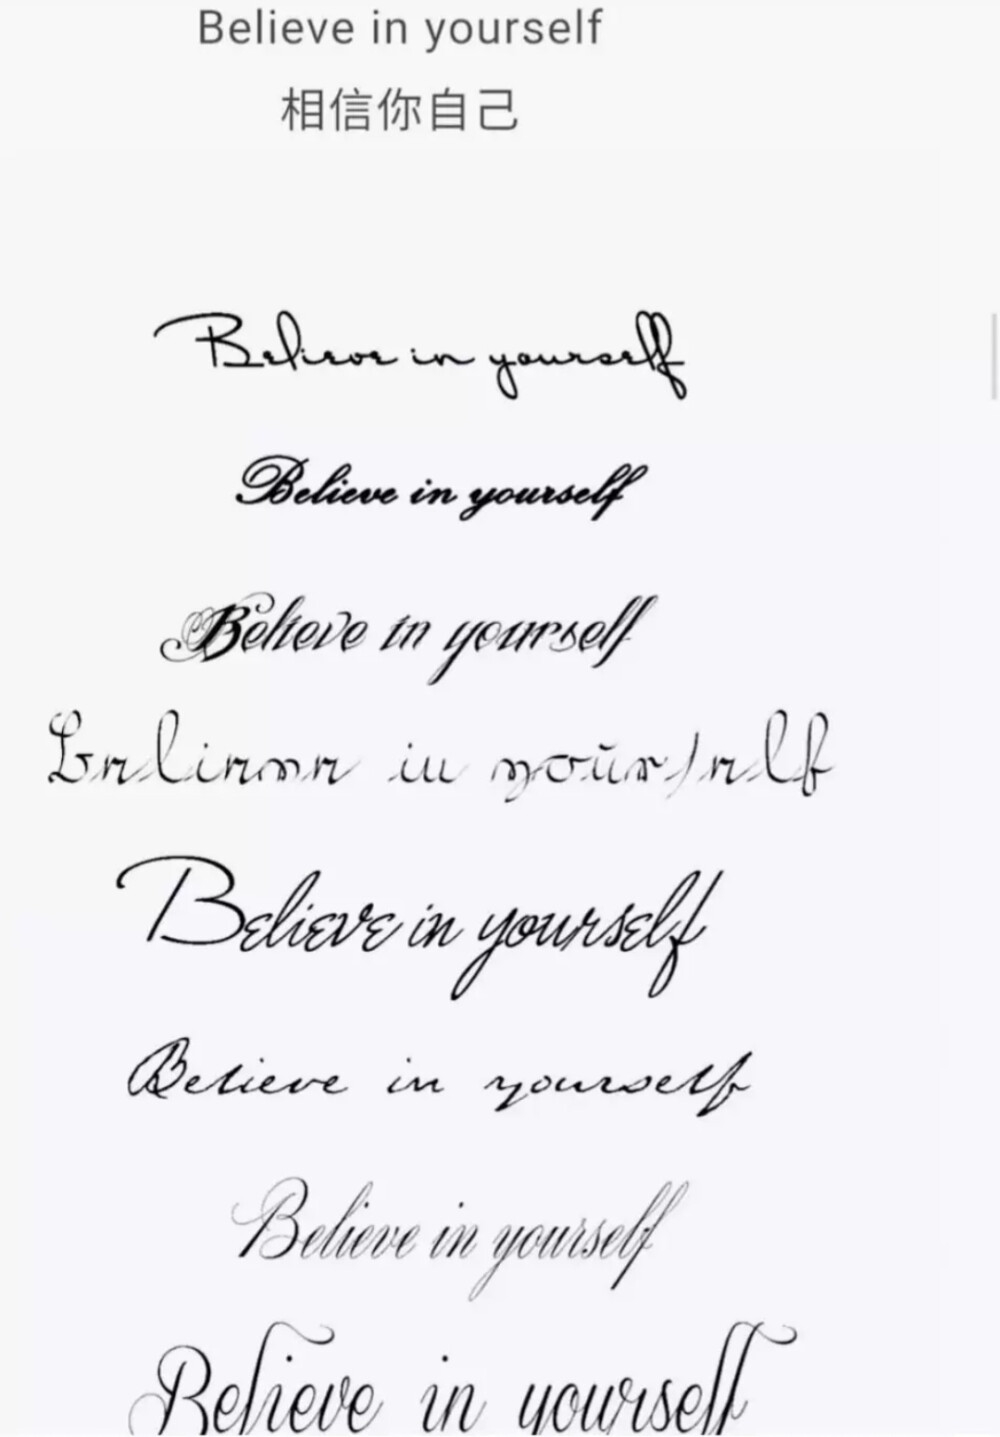 Believe in yourself
相信你自己
Believe in yourself
Believe in yourself
Believe in yourself
Believe in yourself
Believe in yourself
Believe in yourself
Believe in yourself
Believe in yourself